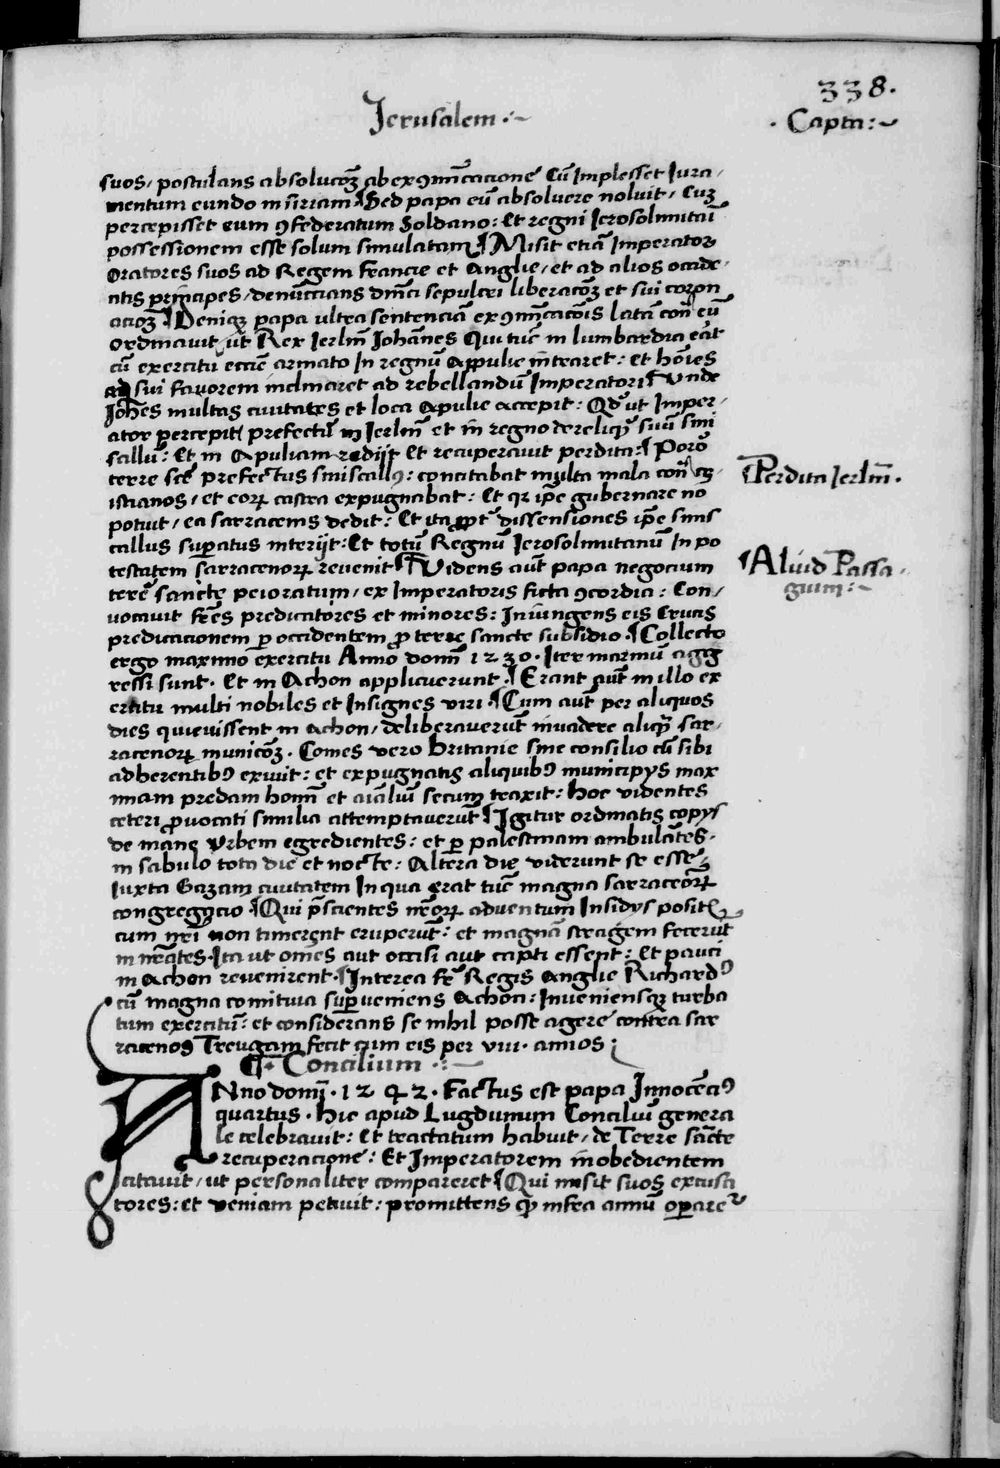 338.
Jerusalem ·~
· Capta :~
suos / postulans absolucōȝ ab exꝯmūcacione Cū Implesset Iura /
mentum eundo in siriam ¶ Sed papa eū absoluere noluit / Cuȝ
percepisset eum ꝯfederatum Soldano : Et regni Ierosolimitaī
possessionem esse solum simulatam ¶ Misit etiā Imperator
Oratores suos ad Regem Francie et Anglie / et ad alios occide /
ātis principes / denūccians dm̄ci sepulcri liberacōȝ et sui coron
acioȝ ¶ Deniqꝫ papa ultra sentenciā exꝯmūcacōis latā conͣ eū
Ordinauit / ut Rex Ierlm̄ Iohānes Qui tūc in lumbardia eāt
cū exercitu eccīe armato In regnū Appulie intraret : et hoīes
ad sui fauorem inclinaret ad rebellandū Imperatori ¶ Vnde
Iohēs multas ciuitates et loca Apulie accepit : Qd̄ ut Imper /
ator percepit / prefectū in Ierlm̄ et in regno dereliqꝫ suū sini
scallū : Et in Apuliam rediit Et recuperauit perdita : ¶ Porō
terre scē prefectus siniscallꝰ : concitabat multa mala conͣ cꝫ
istianos / et eorꝝ castra expugnabat : Et qꝛ ip̄e gubernare nō
potuit / ea sarracenis dedit : Et ita ꝓpt̄ dissensiones ip̄e sinis
callus suꝑatus interijt : Et totū Regnū Ierosolimitanū In po
testatem sarracenorꝝ reuenit ¶ Videns aūt papa negocium
terrē sancte peioratum / ex Imperatoris ficta ꝯcordia : Con /
uocauit fr̄es predicatores et minores : Iniungens eis Crucis
predicacionem ꝑ occidentem ꝓ terre sancte subsidio ¶ Collecto
ergo maximo exercitu Anno domī 1230 . Iter marinū aggꝫ
ressi sunt . Et in Achon applicuerunt . ¶ Erant aūt in illo ex
ercitu multi nobiles et Insignes viri . ¶ Cum aūt per aliquos
dies quieuissent in Achon / deliberauerūt inuadere aliqꝫ sar /
racenorꝝ municōȝ . Comes vero britanie sine consilio cū sibi
adherentibꝰ exiuit : et expugnatis aliquibꝰ municipijs max
imam predam hoīm et aīaliū secum traxit : hoc videntes
ceteri ꝓuocati similia attemptauerūt ¶ Igitur ordinatis copijs
de mane Vrbem egredientes : et ꝑ palestinam ambulātes .
in sabulo toto die et nocte : Altera die viderunt se esse
Iuxta Gazam ciuitatem In qua erat tūc magna sarraceōrꝝ
congregacio ¶ Qui p̄scientes nr̄orꝝ aduentum Insidijs positꝭ
cum nr̄i non timerent eruperūt : et magnā stragem fecerūt
in nr̄ates . Ita ut om̄es aut occisi aut capti essent : Et pauci
in Achon reuenirent . ¶ Interea fr̄ Regis Anglie Richardꝰ
cū magna comitiua suꝑueniens Achon : Inueniensqꝫ turba
tum exercitū : et considerans se nihil posse agere contra sar
racenos Treugam fecit cum eis per viii . annos :
¶ · Concilium · : ~
ANno domī . 1242 . Factus est papa Innocēciꝰ
quartus . Hic apud Lugdunum Conciliū genera
le celebrauit : Et tractatum habuit / de Terre sācte
recuperacione : Et Imperatorem inobedientem
citauit / ut personaliter compareret ¶ Qui misit suos excusa
tores : et veniam petiuit : promittens qꝫ infra annū oꝑare
¶ Perdita Ierlm̄ .
¶ Aliud Passa .
gium : ~